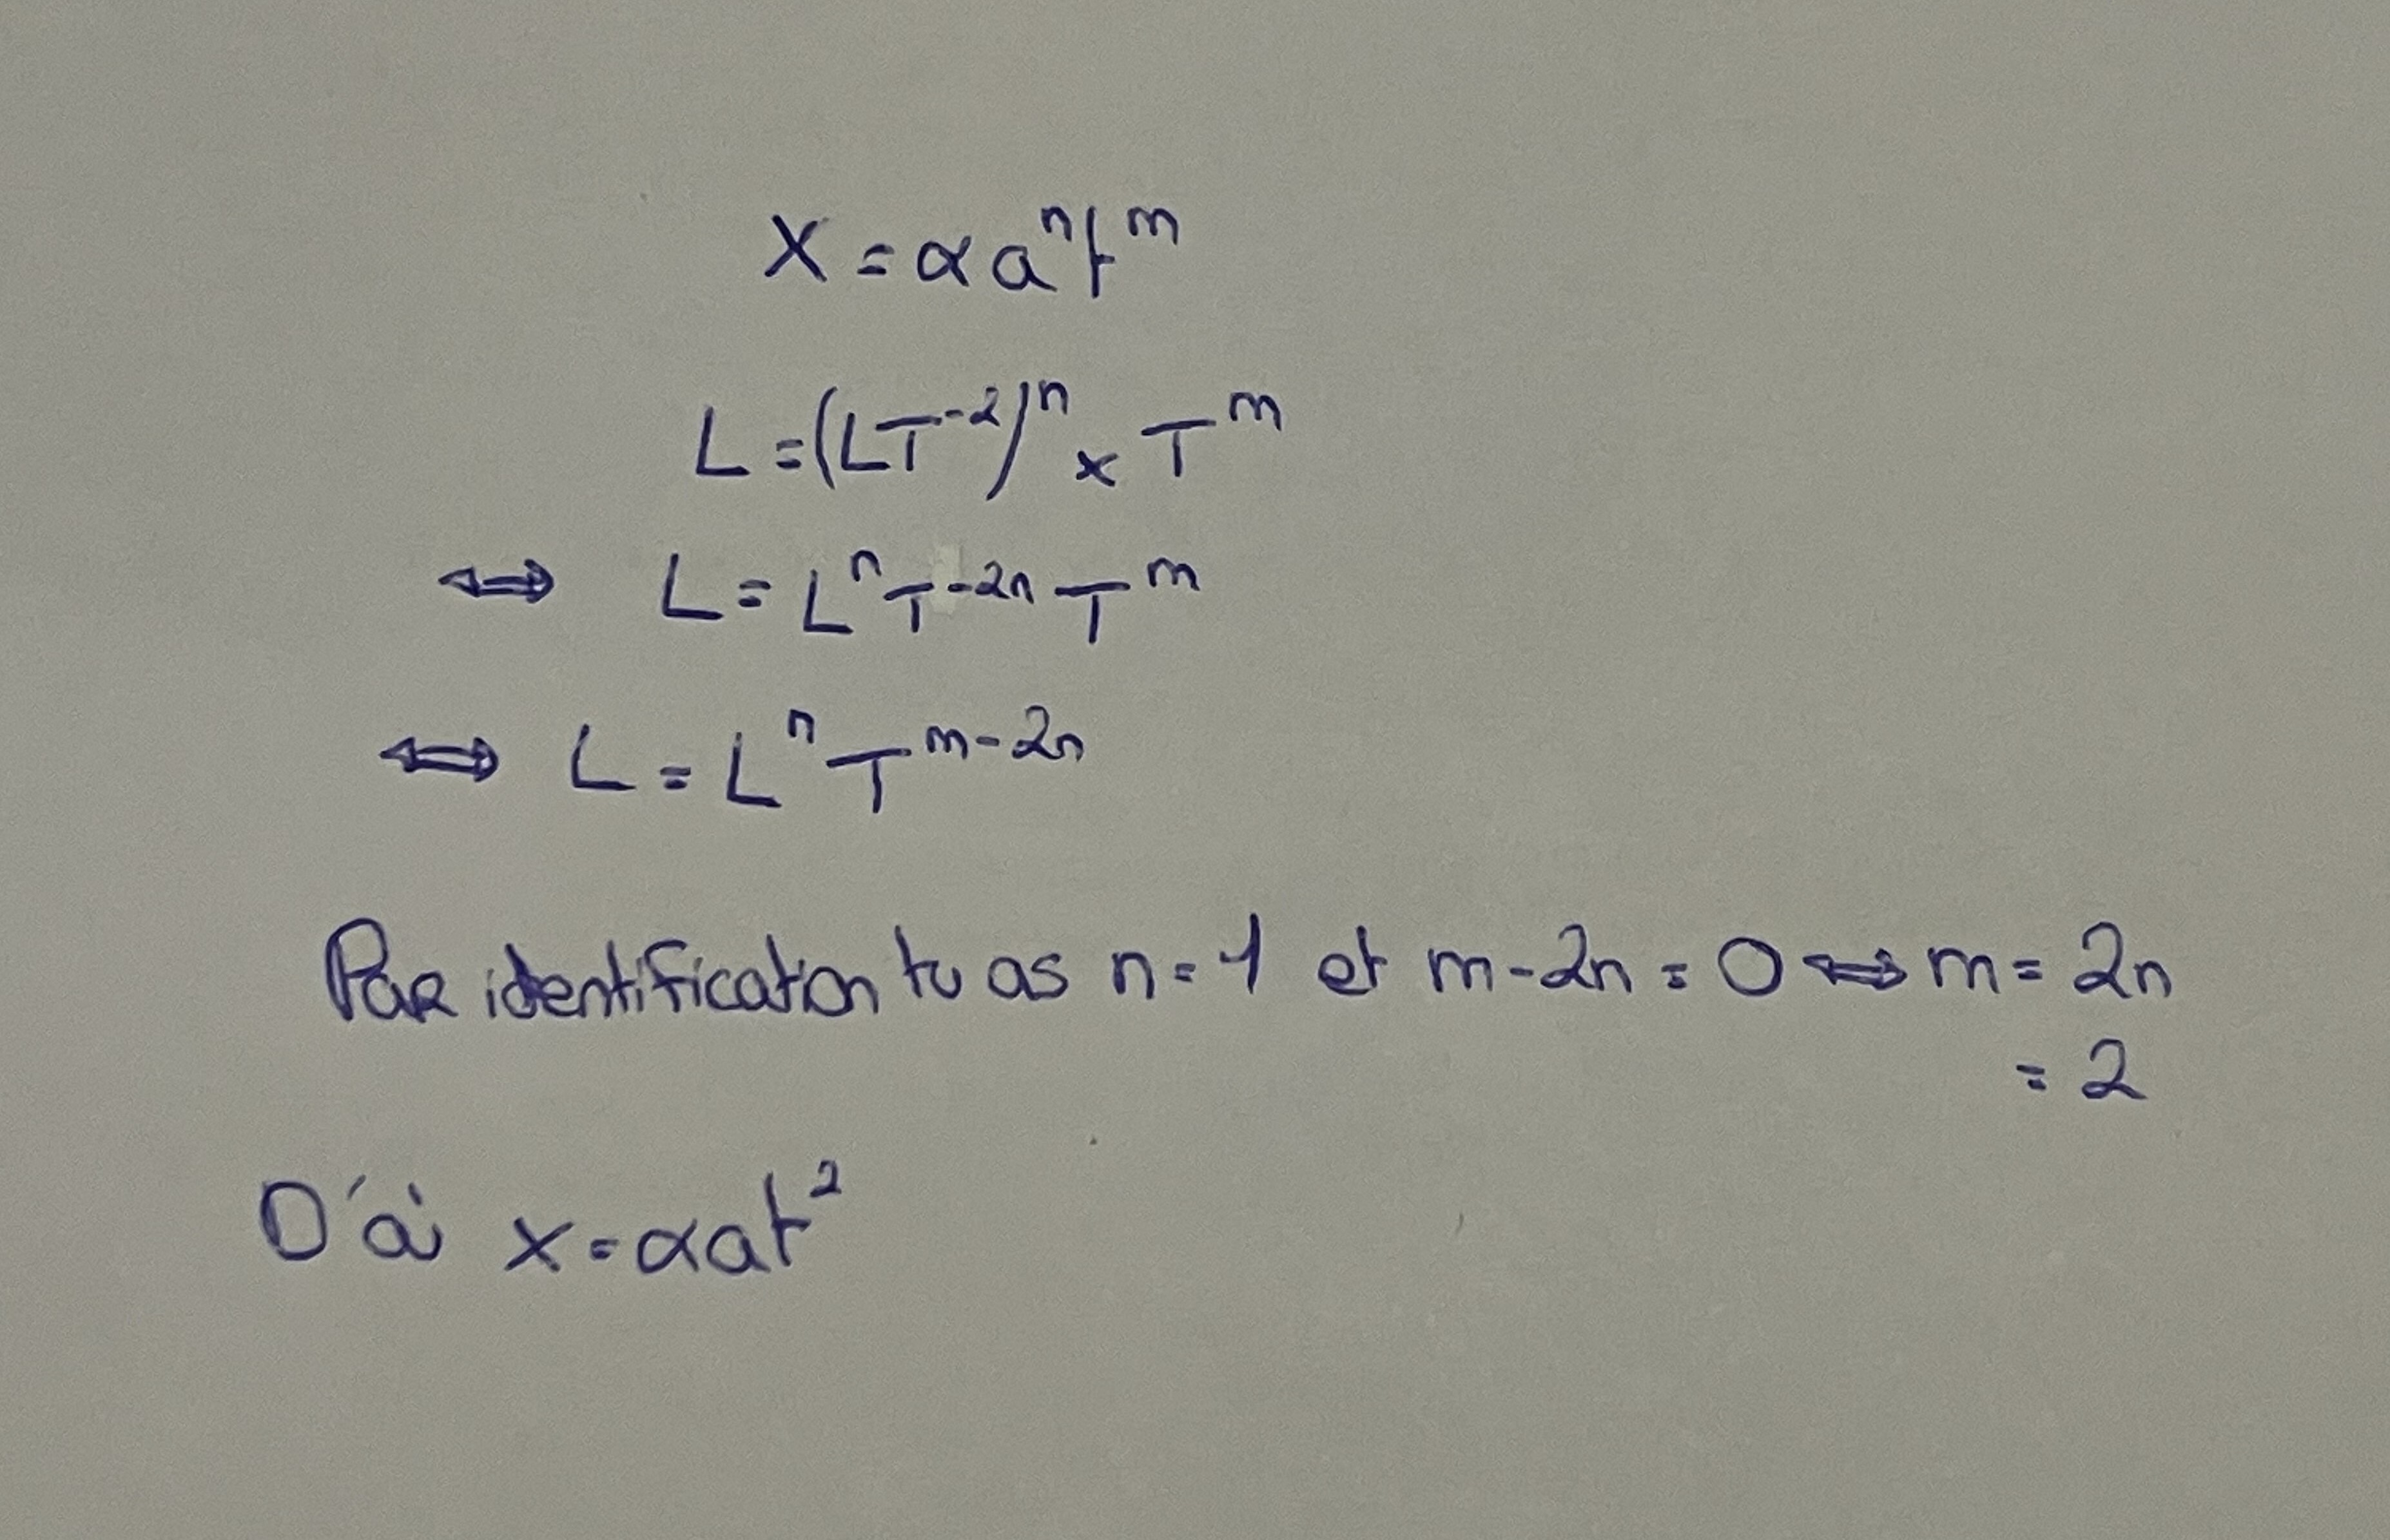 X = α aⁿ tᵐ
L = (LT⁻²)ⁿ × Tᵐ
⟺ L = Lⁿ T⁻²ⁿ Tᵐ
⟺ L = Lⁿ Tᵐ⁻²ⁿ
Par identification tu as n = 1 et m - 2n = 0 ⟺ m = 2n
= 2
D'où x = α a t²